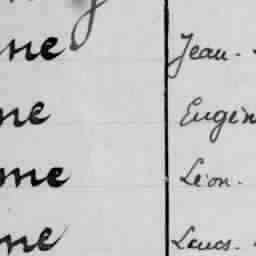 ne Jean.
ne Eugèn
me Léon.
ne Louis.